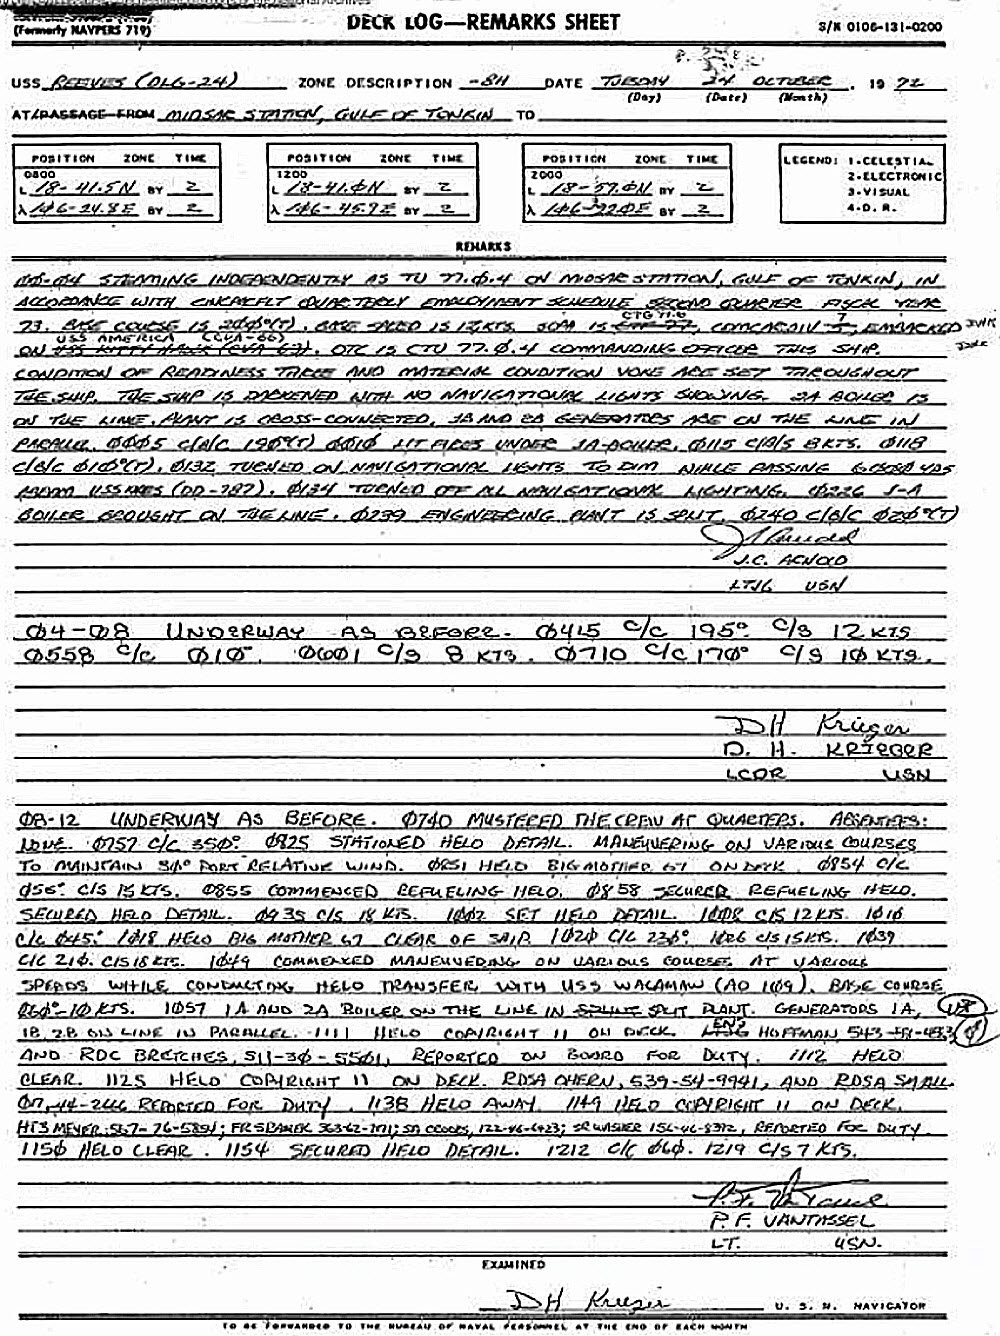 (Formerly NAVPERS 719)
DECK LOG—REMARKS SHEET
S/N 0106-131-0200
USS REEVES (DLG-24) ZONE DESCRIPTION -8H DATE TUESDAY 24 OCTOBER, 19 72
(Day) (Date) (Month)
AT/PASSAGE FROM MIDSAR STATION, GULF OF TONKIN TO
POSITION ZONE TIME
0800
L 18-41.5N BY 2
λ 1Ø6-24.8E BY 2
POSITION ZONE TIME
1200
L 18-41.ØN BY 2
λ 1Ø6-45.9E BY 2
POSITION ZONE TIME
2000
L 18-57.ØN BY 2
λ 1Ø6- BY 2
LEGEND: 1-CELESTIAL
2-ELECTRONIC
3-VISUAL
4-D. R.
REMARKS
ØØ-Ø4 STEAMING INDEPENDENTLY AS TU 77.Ø.4 ON MIDSAR STATION, GULF OF TONKIN, IN
ACCORDANCE WITH CINCPACFLT QUARTERLY EMPLOYMENT SCHEDULE SECOND QUARTER FISCAL YEAR
73. BASE COURSE IS 2ØØ°(T). BASE SPEED IS 12 KTS. SOPA IS CTG 77.6 CTF 77, COMCARDIV 7, EMBARKED
ON USS AMERICA (CVA-66) USS KITTY HAWK (CVA-63). OTC IS CTU 77.Ø.4 COMMANDING OFFICER THIS SHIP.
CONDITION OF READINESS THREE AND MATERIAL CONDITION YOKE ARE SET THROUGHOUT
THE SHIP. THE SHIP IS DARKENED WITH NO NAVIGATIONAL LIGHTS SHOWING. 2A BOILER IS
ON THE LINE. PLANT IS CROSS-CONNECTED. 1B AND 2A GENERATORS ARE ON THE LINE IN
PARALLEL. ØØØ5 C/B/C 19Ø°(T) ØØ1Ø LIT FIRES UNDER 1A-BOILER. Ø115 C/B/S 8 KTS. Ø118
C/B/C Ø1Ø°(T). Ø132 TURNED ON NAVIGATIONAL LIGHTS TO DIM WHILE PASSING 6ØØØ YDS
FROM USS (DD-787). Ø134 TURNED OFF ALL NAVIGATIONAL LIGHTING. Ø226 1-A
BOILER BROUGHT ON THE LINE. Ø239 ENGINEERING PLANT IS SPLIT. Ø240 C/B/C Ø2Ø°(T)
J.C. ARNOLD
LTJG USN
Ø4-Ø8 UNDERWAY AS BEFORE. Ø415 C/C 195° C/S 12 KTS
Ø558 C/C Ø1Ø°. Ø6Ø1 C/S 8 KTS. Ø710 C/C 17Ø° C/S 1Ø KTS.
DH Krieger
D. H. KRIEGER
LCDR USN
Ø8-12 UNDERWAY AS BEFORE. Ø74Ø MUSTERED THE CREW AT QUARTERS. ABSENTEES:
NONE. Ø757 C/C 35Ø°. Ø825 STATIONED HELO DETAIL. MANEUVERING ON VARIOUS COURSES
TO MAINTAIN 3Ø° PORT RELATIVE WIND. Ø851 HELO BIG MOTHER 67 ON DECK Ø854 C/C
Ø5Ø° C/S 15 KTS. Ø855 COMMENCED REFUELING HELO. Ø858 SECURED REFUELING HELO.
SECURED HELO DETAIL. Ø935 C/S 18 KTS. 1ØØ2 SET HELO DETAIL. 1ØØ8 C/S 12 KTS. 1Ø1Ø
C/C Ø45°. 1Ø18 HELO BIG MOTHER 67 CLEAR OF SHIP. 1Ø2Ø C/C 22Ø°. 1Ø26 C/S 15 KTS. 1Ø39
C/C 21Ø. C/S 18 KTS. 1Ø49 COMMENCED MANEUVERING ON VARIOUS COURSES AT VARIOUS
SPEEDS WHILE CONDUCTING HELO TRANSFER WITH USS WACAMAW (AO 1Ø9). BASE COURSE
Ø6Ø°-1Ø KTS. 1Ø57 1A AND 2A BOILER ON THE LINE IN SPLIT PLANT. GENERATORS 1A,
1B, 2B ON LINE IN PARALLEL. 1111 HELO COPYRIGHT 11 ON DECK. ENS LTJG HOFFMAN
AND RDC BRETCHES, 511-3Ø-55Ø1, REPORTED ON BOARD FOR DUTY. 1112 HELO
CLEAR. 1125 HELO COPYRIGHT 11 ON DECK. RDSA OHERN, 539-54-9941, AND RDSA SMALL
REPORTED FOR DUTY. 1138 HELO AWAY. 1149 HELO COPYRIGHT 11 ON DECK.
HT3 MEYER, REPORTED FOR DUTY.
115Ø HELO CLEAR. 1154 SECURED HELO DETAIL. 1212 C/C Ø6Ø. 1219 C/S 7 KTS.
P. F. VANTASSEL
LT. USN.
EXAMINED
DH Krieger U. S. N. NAVIGATOR
TO BE FORWARDED TO THE BUREAU OF NAVAL PERSONNEL AT THE END OF EACH MONTH